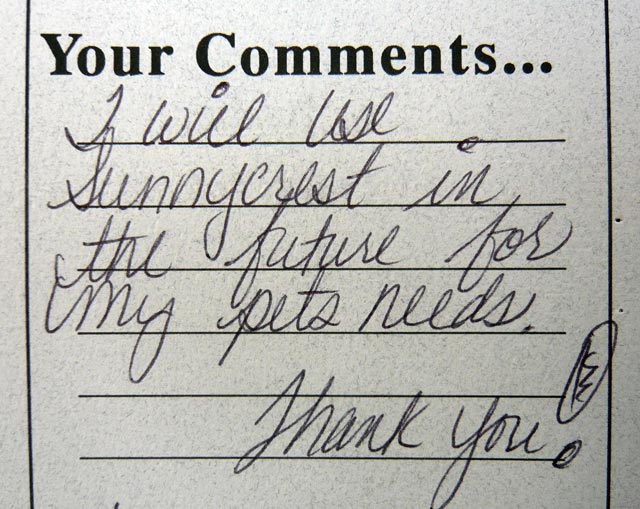 Your Comments...
I will use
Sunnycrest in
the future for
my pets needs.
Thank you!